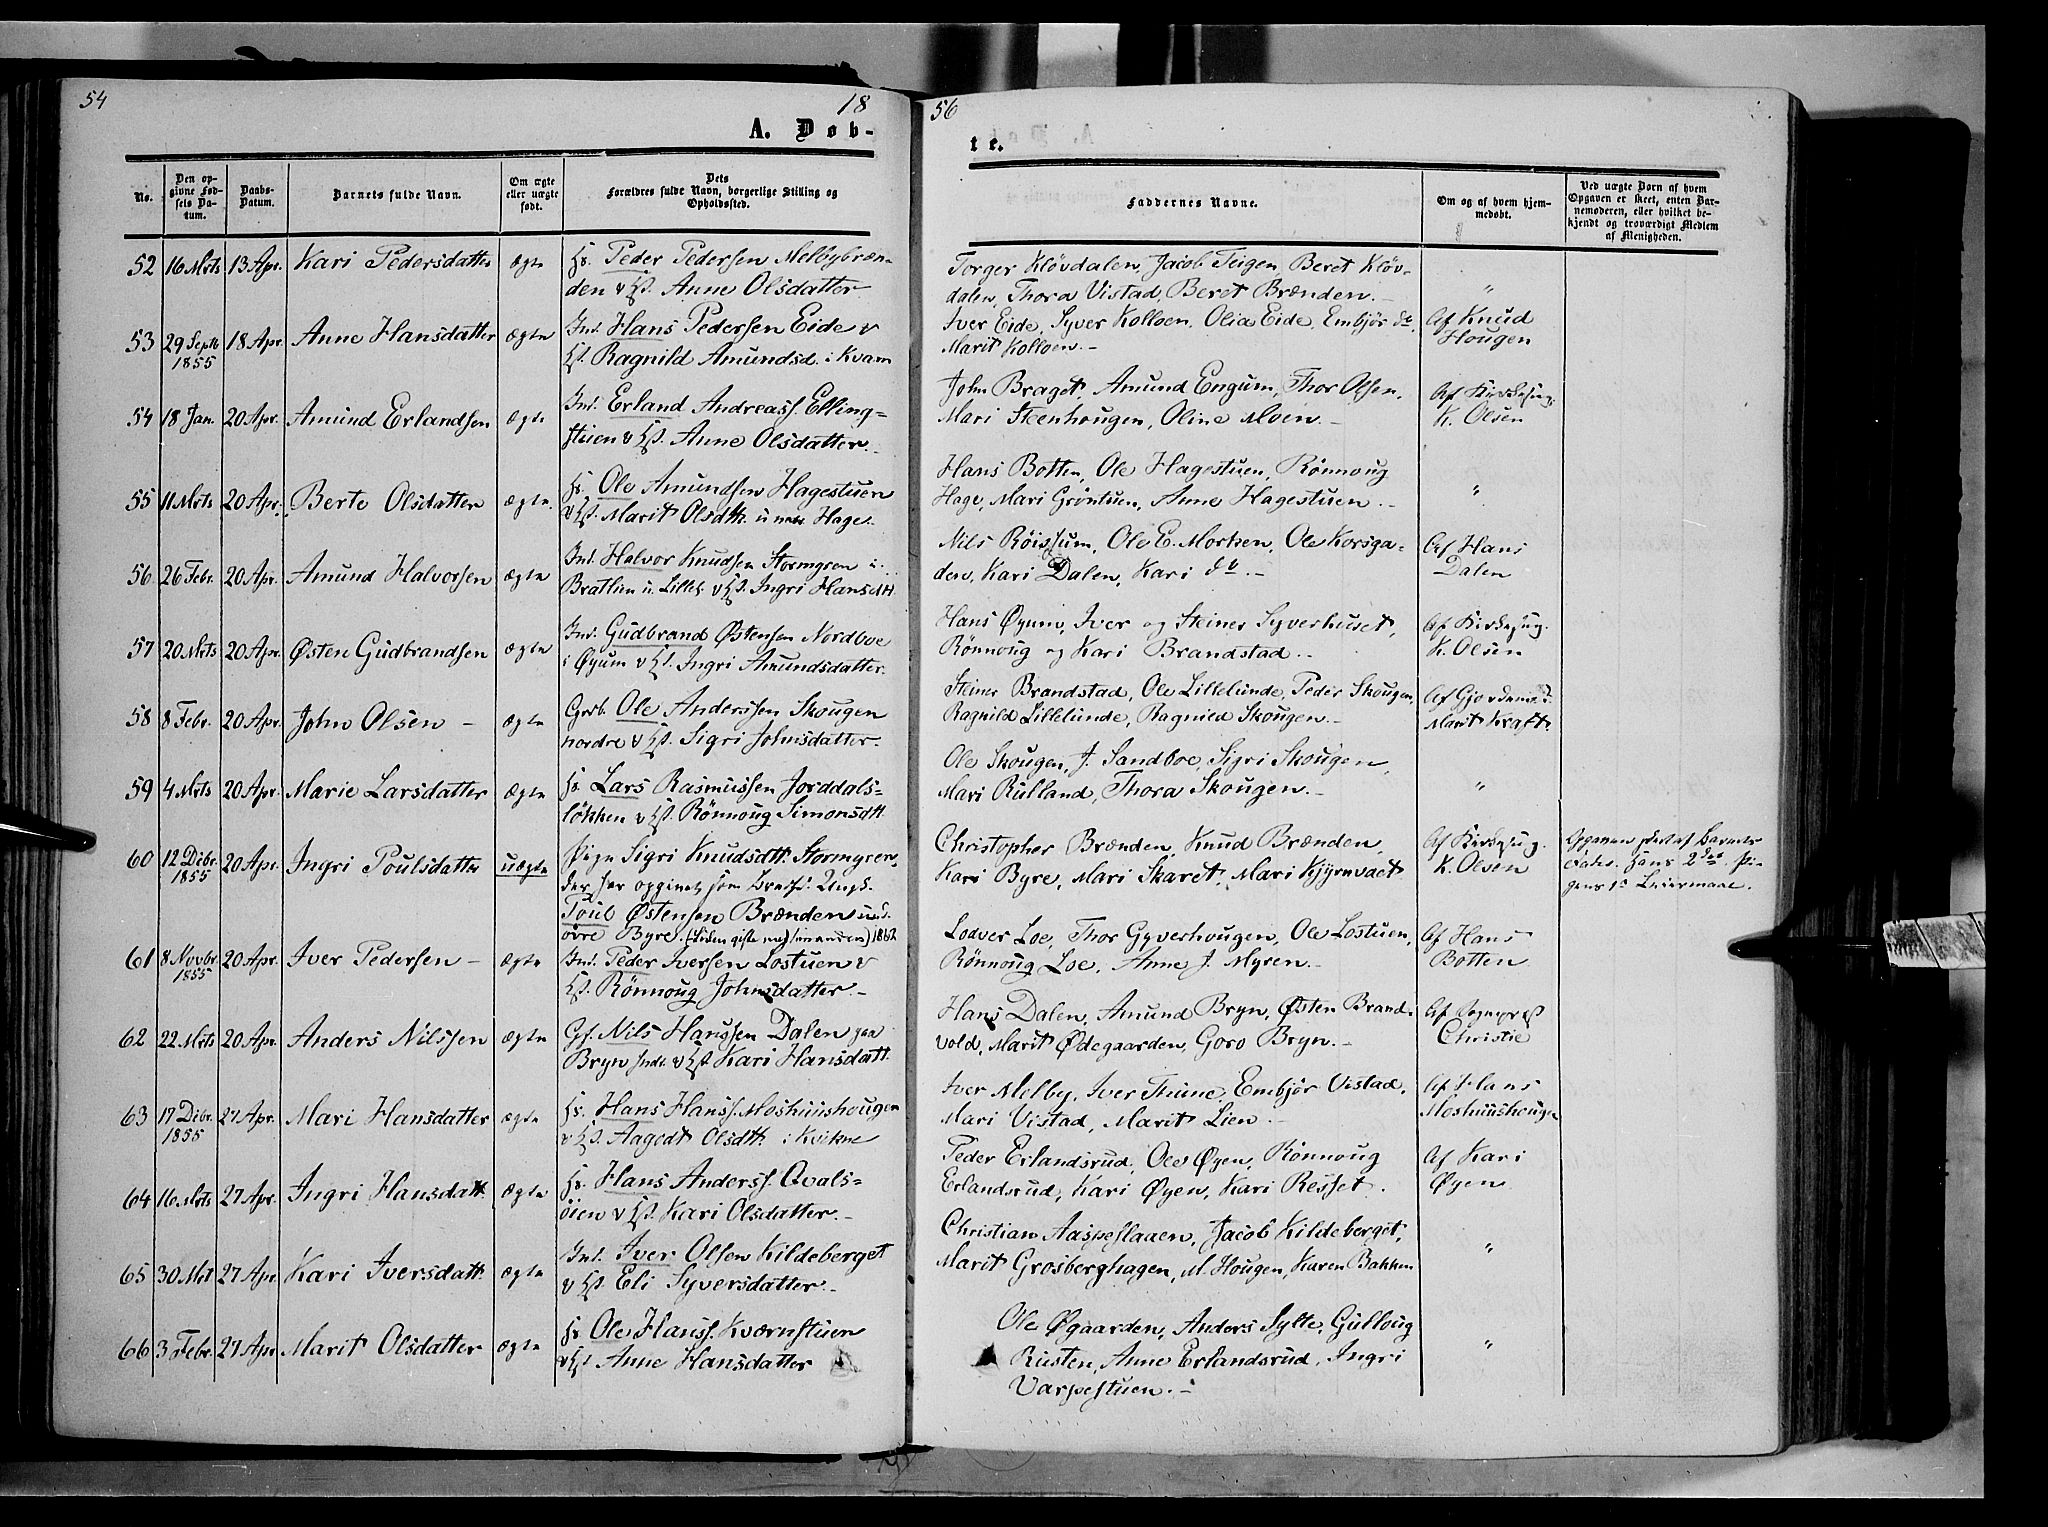 54
18
A. Døb-
No.
Den op-
givne Fød-
sels Da-
tum.
Daabs-
Datum.
Barnets fulde Navn.
Om ægte
eller uægte
født.
Dets
Forældres fulde Navn, borgerlige Stilling og
Opholdssted.
52 16 Mrts 13 Apr. Kari Pedersdatter ægte Hs. Peder Pedersen Melbybræn-
den & Hst. Anne Olsdatter
53 29 Septb 18 Apr. Anne Hansdatter ægte Ind. Hans Pedersen Eide &
1855 Hst. Ragnild Amundsd. i Kvam
54 18 Jan. 20 Apr. Amund Erlandsen ægte Ind. Erland Andreass. Elling-
stuen & Hst. Anne Olsdatter.
55 11 Mrts 20 Apr. Berte Olsdatter ægte Hs. Ole Amundsen Hagestuen
& Hst. Marit Olsdtt. u Hage.
56 26 Febr. 20 Apr. Amund Halvorsen ægte Ind. Halvor Knudsen Stormyren i
Bratlien u. Lilleh. & Hst. Ingri Hansdtt
57 20 Mrts 20 Apr. Østen Gudbrandsen ægte Ind. Gudbrand Østensen Nordboe
i Øyum & Hst. Ingri Amundsdatter.
58 8 Febr. 20 Apr. John Olsen - ægte Grb. Ole Anderssen Skougen
nordre & Hst. Sigri Johnsdatter.
59 4 Mrts 20 Apr. Marie Larsdatter ægte Hs. Lars Rasmussen Jorddals-
løkken & Hst. Rönnoug Simonsdtt.
60 12 Dcbr. 20 Apr. Ingri Poulsdatter uægte Pige Sigri Knudsdtt. Stormyren,
1855 der har opgivet som Barnef. Ungk.
Poul Østensen Brænden und.
øvre Byre. (Siden gifte med hinanden) 1862
61 8 Novbr. 20 Apr. Iver Pedersen - ægte Ind. Peder Iversen Lostuen &
1855 Hst. Rönnoug Johnsdatter. -
62 22 Mrts 20 Apr. Anders Nilssen ægte Gf. Nils Hanssen Dalen paa
Bryn Indr. & Hst. Kari Hansdatt.
63 17 Dcbr. 27 Apr. Mari Hansdatter ægte Hs. Hans Hanss. Moshuushougen
1855 & Hst. Aagodt Olsdtt. i Kvikne
64 16 Mrts 27 Apr. Ingri Hansdatt. ægte Hs. Hans Anderss. Qvals-
öien & Hst. Kari Olsdatter. -
65 30 Mrt 27 Apr. Kari Iversdatt. ægte Ind. Iver Olsen Kildeberget
& Hst. Eli Syversdatter. -
66 3 Febr. 27 Apr Marit Olsdatter ægte Hs. Ole Hanss. Kværnstuen
& Hst. Anne Hansdatter
56
te.
Faddernes Navne.
Om og af hvem hjem-
medøbt.
Ved uægte Børn af hvem
Opgaven er skeet, enten Bar-
nemoderen, eller hvilket be-
kjendt og troværdigt Medlem
af Menigheden.
Torger Klövdalen, Jacob Teigen, Beret Klöv-
dalen, Thora Vistad, Beret Brænden. - "
Iver Eide, Syver Kolloen, Olia Eide, Embjör do. Af Knud
Marit Kolloen. - Hougen
John Braget, Amund Engum, Thor Olsen, Af Kirkesng.
Mari Steenhougen, Oline Moen. - K. Olsen
Hans Botten, Ole Hagestuen, Rönnoug
Hage, Mari Gröntuen, Anne Hagestuen. - "
Nils Röissum, Ole E. Morken, Ole Korsga- Af Hans
den, Kari Dalen, Kari do. - Dalen
Hans Øyum, Iver og Steiner Syverhuset, Af Kirkesng.
Rönnoug og Kari Brandstad. - K. Olsen
Steiner Brandstad, Ole Lillelunde, Peder Skougen, Af Gjordem.
Ragnild Lillelunde, Ragnild Skougen. - Marit Kraft.
Ole Skougen, J. Sandboe, Sigri Skougen,
Mari Rulland, Thora Skougen. - "
Christopher Brænden, Knud Brænden, Af Kirkesng. Opgaven skeet af Barnets
Kari Byre, Mari Skaret, Mari K. Olsen Fader. Hans 2det Pi-
gens 1s Leiermaal.
Lodver Loe, Thor Gyverhougen, Ole Lostuen, Af Hans
Rönnoug Loe, Anne J. Myren. - Botten
Hans Dalen, Amund Bryn, Østen Brand- Af Sognepræst
vold, Marit Ødegaarden, Goro Bryn. - Christie
Iver Melby, Iver Thune, Embjör Vistad, Af Hans
Mari Vistad, Marit Lien. - Moshuushougen
Peder Erlandsrud, Ole Øyen, Rönnoug Af Kari
Erlandsrud, Kari Øyen, Kari Resset. Øyen
Christian Aaspeslaaen, Jacob Kildeberget,
Marit Grosberghagen, M. Hougen, Karen Bakken "
Ole Øgaarden, Anders Sylte, Gulloug
Rusten, Anne Erlandsrud, Ingri "
Varpestuen. -